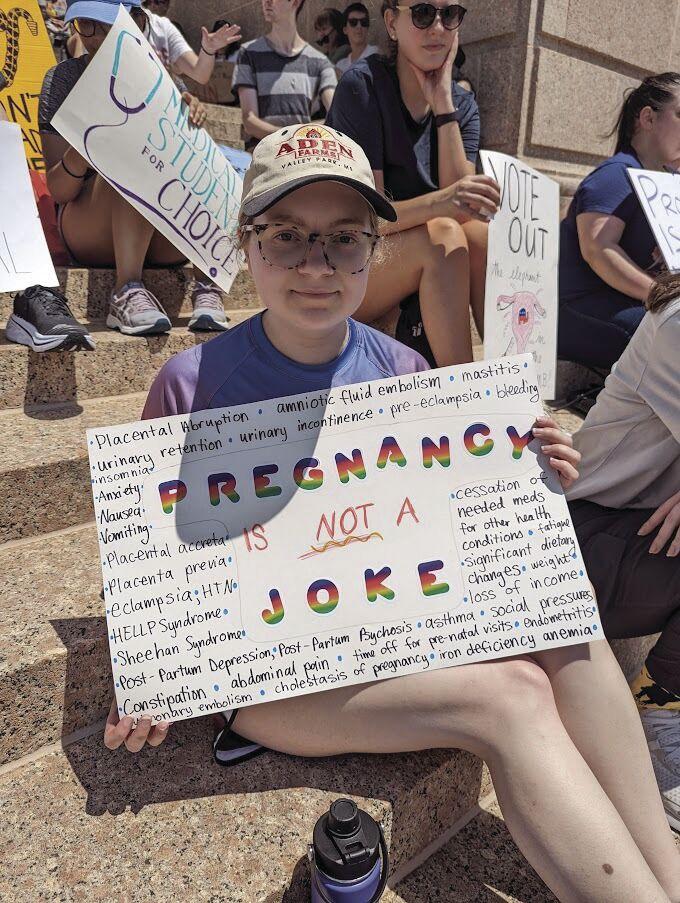 MEDICAL
STUDENTS
FOR
CHOICE
ADEN
FARMS
VALLEY PARK, MS
VOTE
OUT
the elephant
in the
PRO
IS
N'T
L
• Placental Abruption • amniotic fluid embolism • mastitis •
• urinary retention • urinary incontinence • pre-eclampsia • bleeding
• insomnia
• Anxiety
• Nausea
• Vomiting
• Placental accreta
• Placenta previa
• eclampsia, HTN
• HELLP Syndrome
• Sheehan Syndrome
PREGNANCY
IS NOT A
JOKE
• cessation of
needed meds
for other health
conditions • fatigue
• significant dietary
changes • weight
• loss of income
• Post-Partum Depression, Post-Partum Psychosis • asthma • social pressures
• Constipation • abdominal pain • time off for pre-natal visits • endometritis
onary embolism • cholestasis of pregnancy • iron deficiency anemia